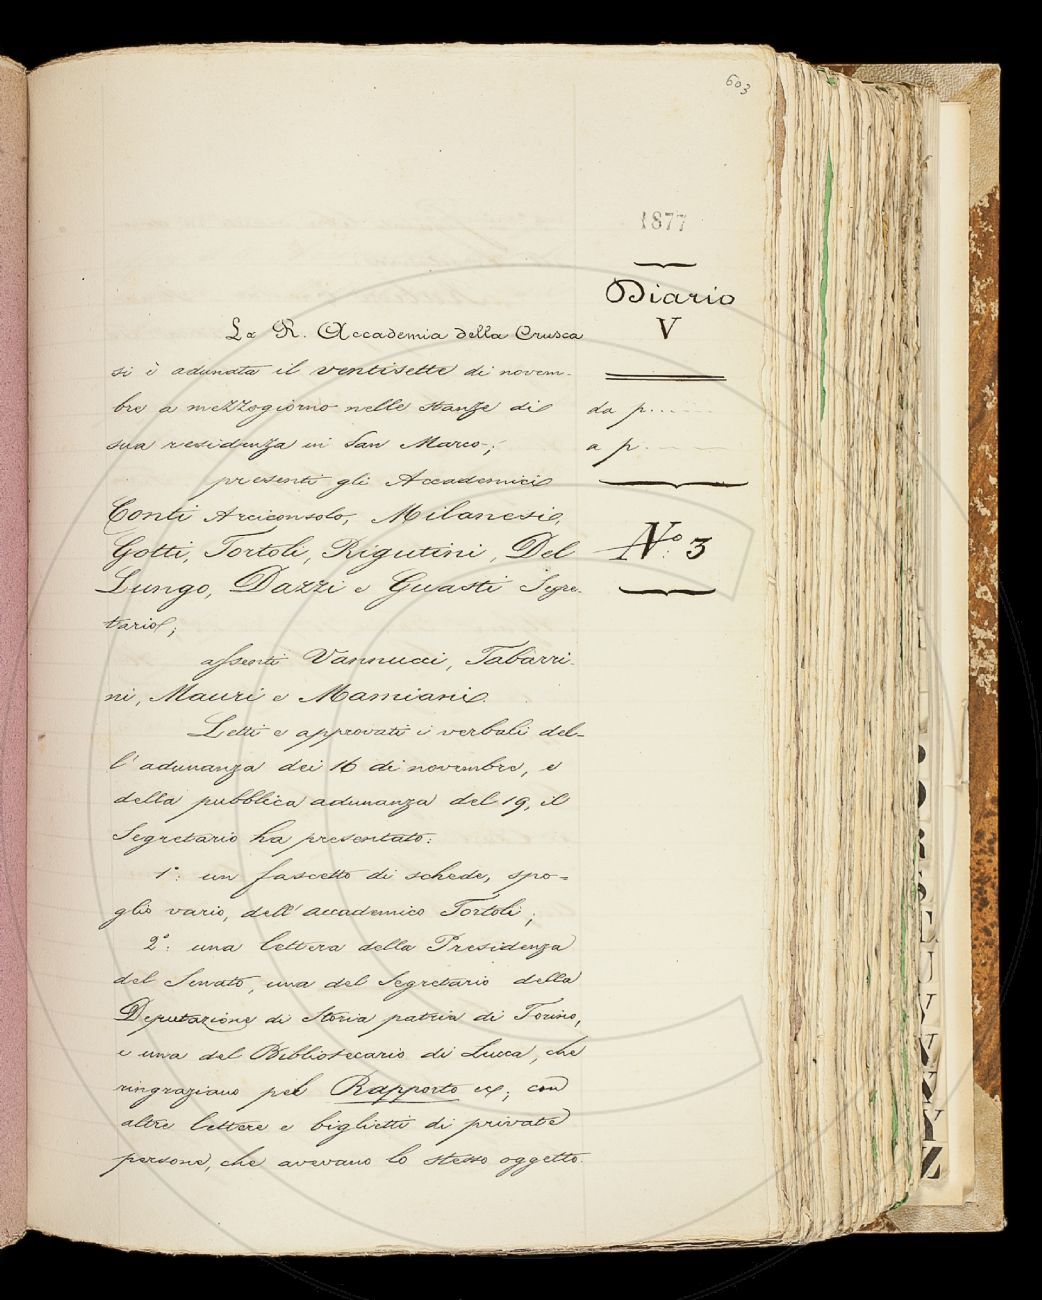 603
1877
Diario
V
da p.....
a p.....
N.o 3
La R. Accademia della Crusca
si è adunata il ventisette di novem-
bre a mezzogiorno nelle stanze di
sua residenza in San Marco;
presenti gli Accademici
Conti Arciconsolo, Milanesi,
Gotti, Tortoli, Rigutini, Del
Lungo, Dazzi e Guasti Segre-
tario;
assenti Vannucci, Tabarri-
ni, Mauri e Mamiani.
Letti e approvati i verbali del-
l'adunanza dei 16 di novembre, e
della pubblica adunanza del 19, il
Segretario ha presentato:
1.° un fascetto di schede, spo-
glio vario, dell'accademico Tortoli;
2.° una lettera della Presidenza
del Senato, una del Segretario della
Deputazione di Storia patria di Torino,
e una del Bibliotecario di Lucca, che
ringraziano pel Rapporto ec.; con
altre lettere e biglietti di private
persone, che avevano lo stesso oggetto.